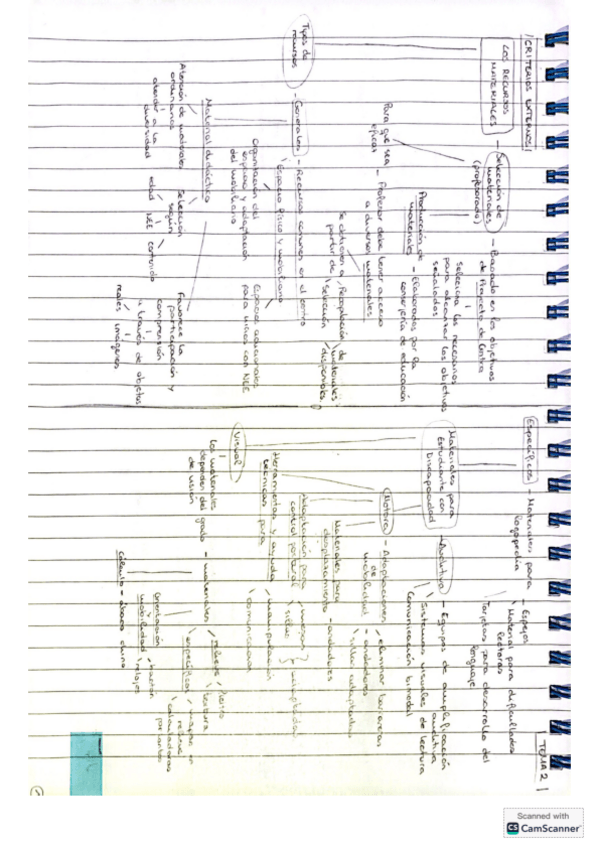 TEMA 2
CRITERIOS EXTERNOS
LOS RECURSOS
MATERIALES
- Selección de
materiales
(profesorado)
- Basado en los objetivos
de Proyecto de Centro
Selecciona los necesarios
para alcanzar los objetivos
señalados
Producción de
materiales
- Elaborados por la
consejería de educación
Para que sea
eficaz
- Profesor debe tener acceso
a diversos materiales
Se obtienen a
partir de
Recopilación de
Selección
materiales
disponibles
Tipos de
recursos
- Generales
- Recursos comunes en el centro
Espacio físico y mobiliario
Organización del
espacio y adaptación
del mobiliario
Espacios adicionales
para niños con NEE
Material didáctico
Atención de materiales
ordinarios
atender a la
diversidad
Selección
según
edad
NEE
contenido
Favorece la
participación y
comprensión
a través de objetos
reales
imágenes
Específicos
- Materiales para
logopedia
- Espejos
Material para dificultades
lectoras
Tarjetas para desarrollo del
lenguaje
Materiales para
Estudiante con
Discapacidad
- Auditiva
- Equipos de amplificación
auditiva
Sistemas visuales de lectura
Comunicación bimodal
Motora
- Adaptaciones
de
movilidad
- eliminar barreras
- andadores
- sillas adaptadas
Materiales para
desplazamiento
- andadores
Adaptación para
control postural
mesas
sillas
adaptadas
Herramientas y ayuda
técnicas para
manipulación
comunicación
Visual
Los materiales
dependen del grado
de visión
- materiales
relieve
texto
textura
específicos
mapas en
relieve
calculadoras
parlantes
Orientación
y
movilidad
bastón
cálculo - ábaco chino
Scanned with
CS CamScanner